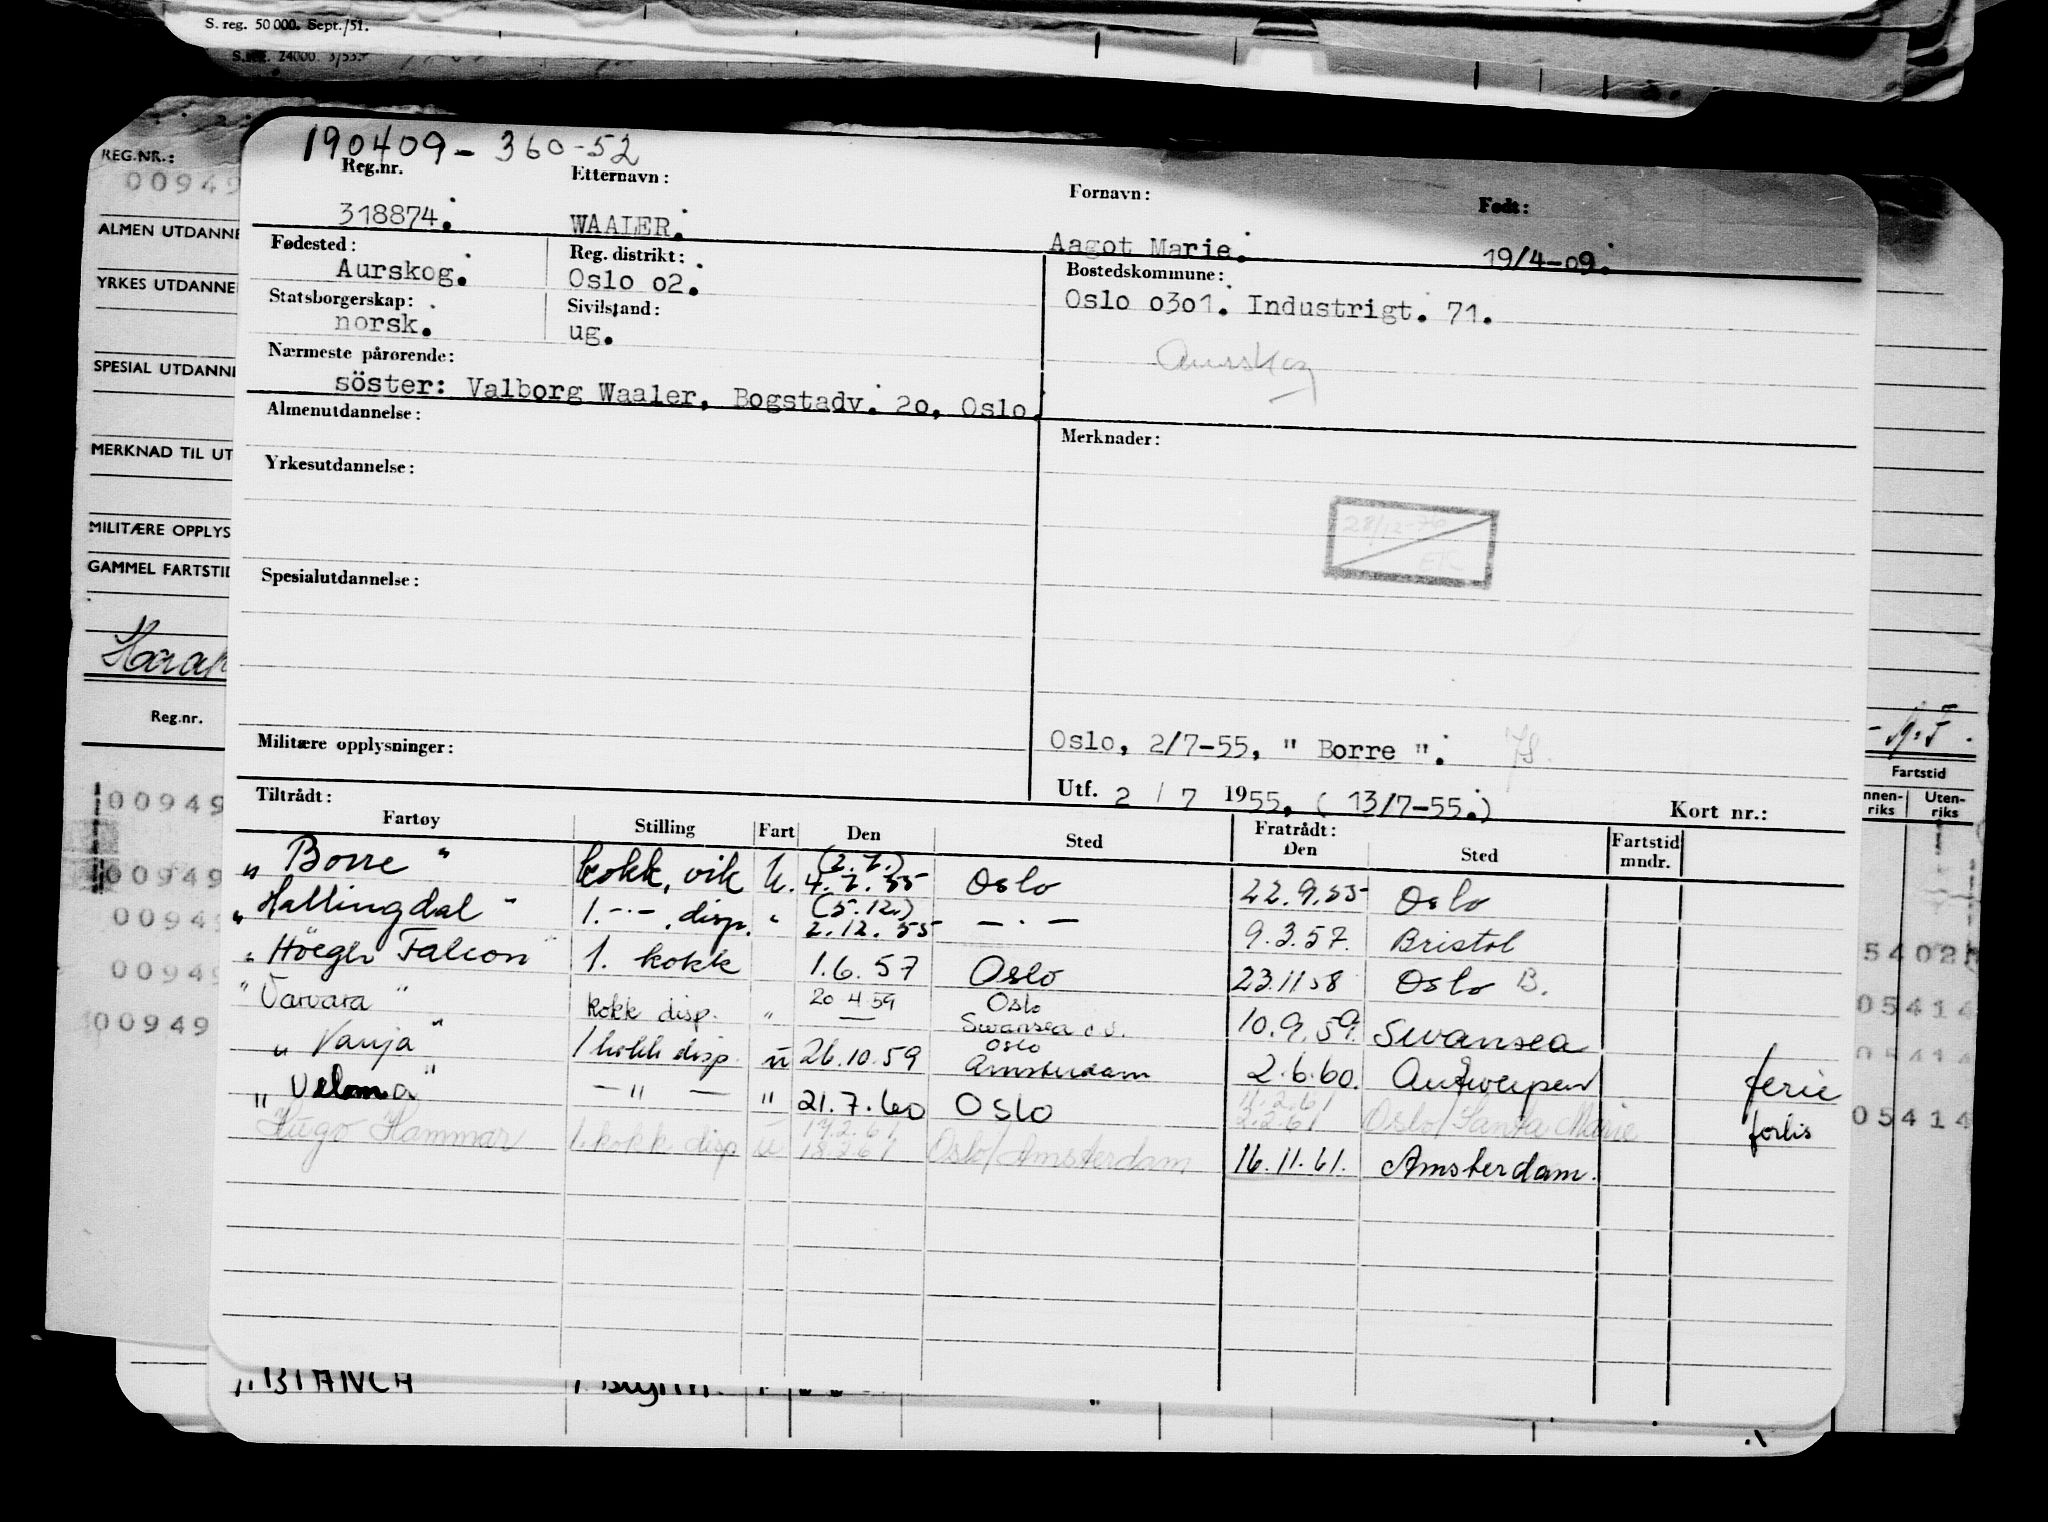 S. reg. 50 000. Sept./51.
REG.NR.:
00949
ALMEN UTDANNE
YRKES UTDANNE
SPESIAL UTDANNE
MERKNAD TIL UT
MILITÆRE OPPLYS
GAMMEL FARTSTID
Reg.nr.
00949
00949
00949
00949
00949
190409 - 360-52
Reg.nr. Etternavn: Fornavn: Født:
318874. WAALER. Aagot Marie. 19/4-09.
Fødested: Reg. distrikt: Bostedskommune:
Aurskog. Oslo 02. Oslo 0301. Industrigt. 71.
Statsborgerskap: Sivilstand:
norsk. ug.
Aurskog
Nærmeste pårørende:
söster: Valborg Waaler, Bogstadv. 20, Oslo.
Almenutdannelse: Merknader:
Yrkesutdannelse:
28/12-76
ETC
Spesialutdannelse:
Militære opplysninger: Oslo, 2/7-55, " Borre ".
Utf. 2 / 7 1955. ( 13/7-55.)
Tiltrådt: Fratrådt: Kort nr.:
Fartøy Stilling Fart Den Sted Den Sted Fartstid mndr.
" Borre " kokk, vik u. (2.7.) 4.7.55 Oslo 22.9.55 Oslo
" Hallingdal " 1. -·-, disp. " (5.12.) 2.12.55 -·- 9.3.57. Bristol
" Höegh Falcon " 1. kokk 1.6.57 Oslo 23.11.58 Oslo B.
" Varvara " kokk disp. " 20 4 59 Oslo
Swansea 10.9.59. Swansea
" Vanja " 1 kokk disp. u 26.10.59 Oslo Amsterdam 2.6.60. Antwerpen ferie
" Velma " - " - " 21.7.60 Oslo 11.2.61 2.2.61 Oslo/Santa Marie forlis
Hugo Hammar 1. kokk disp u 17.2.61 18.2.61 Oslo/Amsterdam 16.11.61. Amsterdam.
Fartstid
nnen- riks Uten- riks
5402
05414
05414
05414